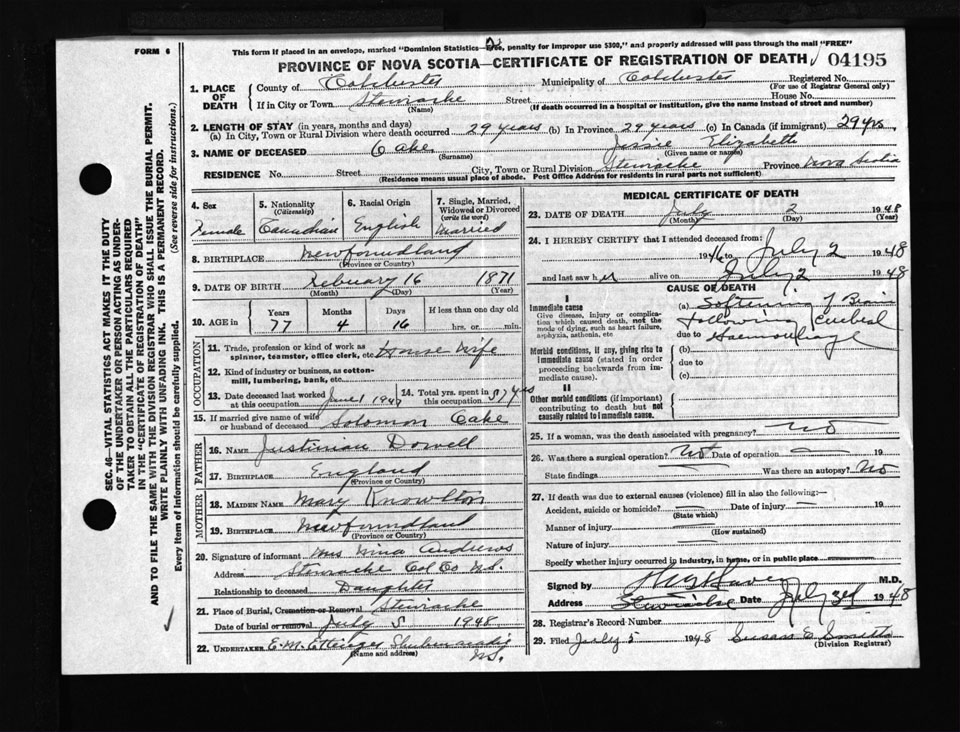 This form if placed in an envelope, marked "Dominion Statistics—Free, penalty for improper use $300," and properly addressed will pass through the mail "FREE"
FORM 6
PROVINCE OF NOVA SCOTIA—CERTIFICATE OF REGISTRATION OF DEATH
04195
1. PLACE OF DEATH
County of Colchester Municipality of Colchester Registered No.
(For use of Registrar General only)
If in City or Town Stewiacke Street House No.
(Name) (If death occurred in a hospital or institution, give the name instead of street and number)
2. LENGTH OF STAY (in years, months and days)
(a) In City, Town or Rural Division where death occurred 29 years (b) In Province 29 years (c) In Canada (if immigrant) 29 yrs.
3. NAME OF DECEASED Cake Jessie Elizabeth
(Surname) (Given name or names)
RESIDENCE No. Street City, Town or Rural Division Stewiacke Province Nova Scotia
(Residence means usual place of abode. Post Office Address for residents in rural parts not sufficient)
4. Sex Female
5. Nationality (Citizenship) Canadian
6. Racial Origin English
7. Single, Married, Widowed or Divorced (write the word) Married
8. BIRTHPLACE Newfoundland
(Province or Country)
9. DATE OF BIRTH February 16 1871
(Month) (Day) (Year)
10. AGE in Years Months Days If less than one day old
77 4 16 hrs. or min.
OCCUPATION
11. Trade, profession or kind of work as spinner, teamster, office clerk, etc. House Wife
12. Kind of industry or business, as cotton-mill, lumbering, bank, etc.
13. Date deceased last worked at this occupation June 1 1947
14. Total yrs. spent in this occupation 57 yrs
15. If married give name of wife or husband of deceased Solomon Cake
FATHER
16. NAME Justinian Dowell
17. BIRTHPLACE England
(Province or Country)
MOTHER
18. MAIDEN NAME Mary Knowlton
19. BIRTHPLACE Newfoundland
(Province or Country)
20. Signature of informant Mrs Nina Andrews
Address Stewiacke Col Co N.S.
Relationship to deceased Daughter
21. Place of Burial, Cremation or Removal Stewiacke
Date of burial or removal July 5 1948
22. UNDERTAKER E.M. Ettinger Shubenacadie
(Name and address) N.S.
MEDICAL CERTIFICATE OF DEATH
23. DATE OF DEATH July 2 1948
(Month) (Day) (Year)
24. I HEREBY CERTIFY that I attended deceased from:
1946 to July 2 1948
and last saw her alive on July 2 1948
CAUSE OF DEATH
I
Immediate cause
Give disease, injury or complication which caused death, not the mode of dying, such as heart failure, asphyxia, asthenia, etc
(a) Softening of Brain
Following Cerebral
due to Haemorrhage
Morbid conditions, if any, giving rise to immediate cause (stated in order proceeding backwards from immediate cause).
(b)
due to
(c)
II
Other morbid conditions (if important) contributing to death but not causally related to immediate cause.
25. If a woman, was the death associated with pregnancy? No
26. Was there a surgical operation? No Date of operation — 19
State findings Was there an autopsy? No
27. If death was due to external causes (violence) fill in also the following:—
Accident, suicide or homicide? — Date of injury — 19
(State which)
Manner of injury
(How sustained)
Nature of injury
Specify whether injury occurred in industry, in home, or in public place
Signed by M.D.
Address Stewiacke Date July 3rd 1948
28. Registrar's Record Number
29. Filed July 5 1948 Susan E Smith
(Division Registrar)
SEC. 46—VITAL STATISTICS ACT MAKES IT THE DUTY
OF THE UNDERTAKER OR PERSON ACTING AS UNDER-
TAKER TO OBTAIN ALL THE PARTICULARS REQUIRED
IN THE "CERTIFICATE OF REGISTRATION OF DEATH"
AND TO FILE THE SAME WITH THE DIVISION REGISTRAR WHO SHALL ISSUE THE BURIAL PERMIT.
WRITE PLAINLY WITH UNFADING INK. THIS IS A PERMANENT RECORD.
Every item of information should be carefully supplied. (See reverse side for instructions.)